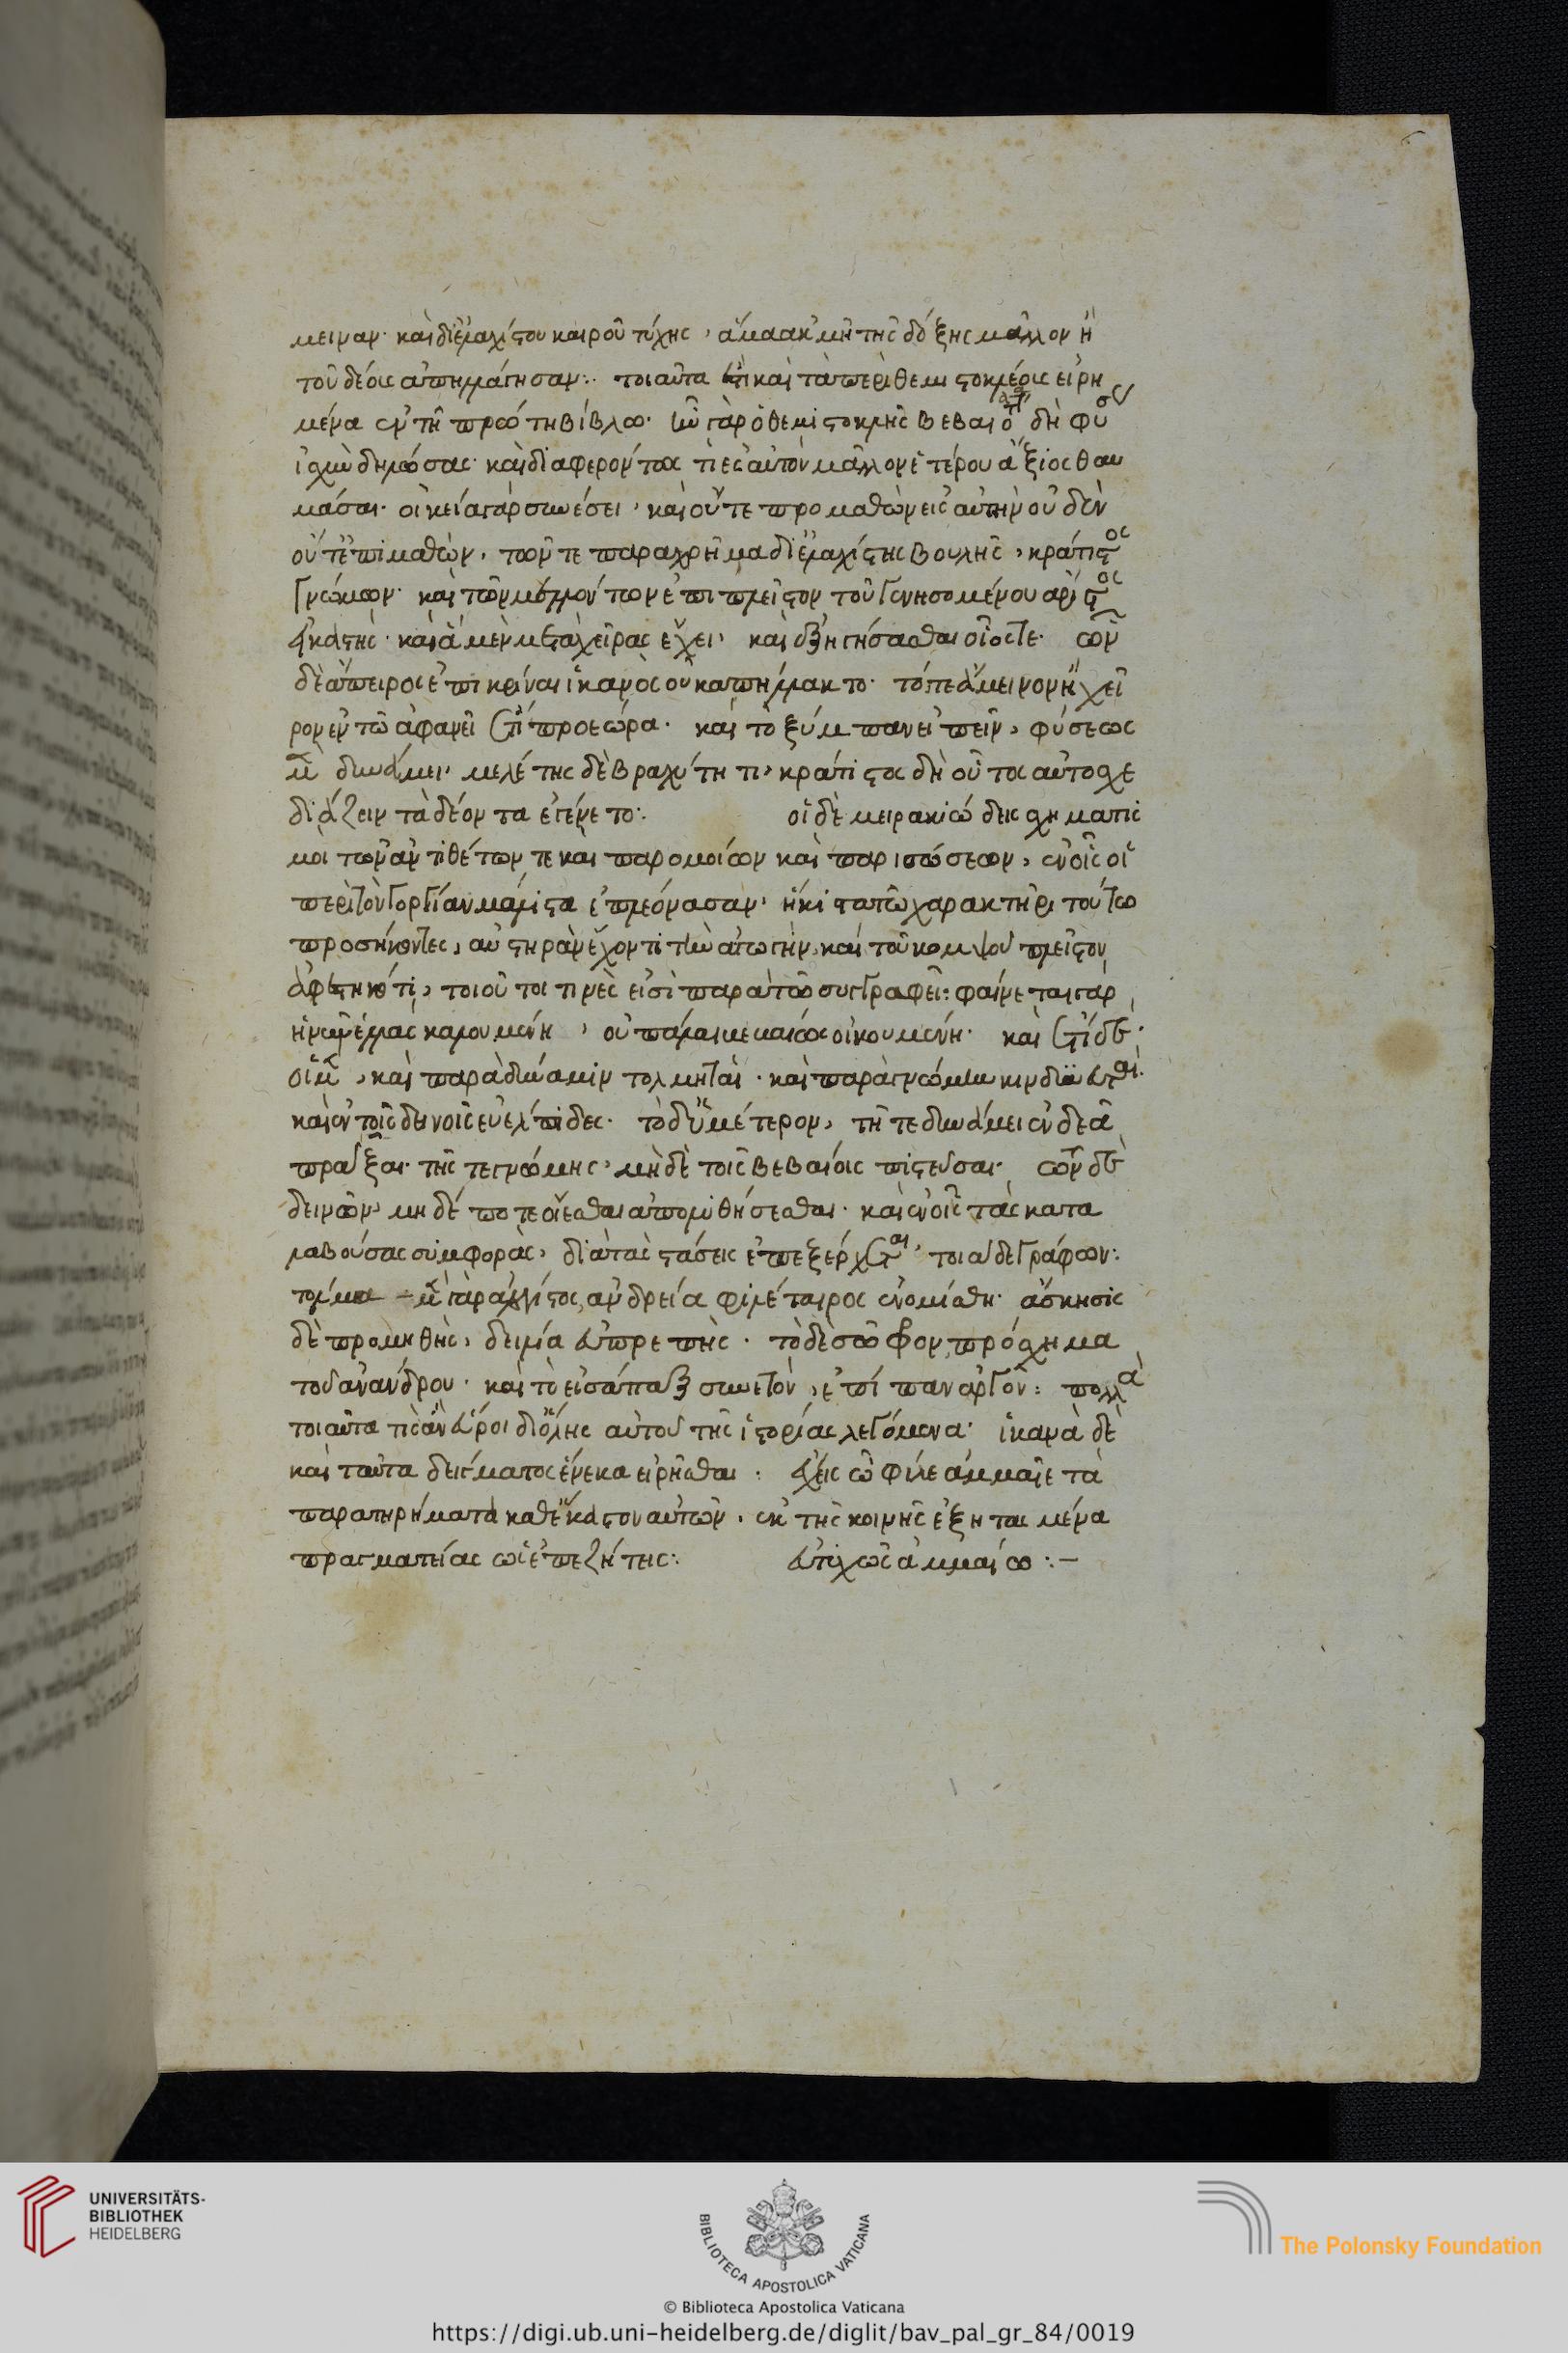 μειναν· καὶ δι' ἐλαχίστου καιροῦ τύχης, ἅμα ἀκμῆ τῆς δόξης μᾶλλον ἢ
τοῦ δέους ἀπηλλάγησαν:· τοιαῦτα ἐστὶ καὶ τὰ περὶ θεμιστοκλέους εἰρη
μένα ἐν τῆ πρώτη βίβλω· ἦν γὰρ ὁ θεμιστοκλῆς βεβαιότατα δὴ φύσεως
ἰσχὺν δηλώσας· καὶ διαφερόντως τι ἐς αὐτὸ μᾶλλον ἑτέρου ἄξιος θαυ
μάσαι· οἰκεία γὰρ συνέσει, καὶ οὔτε προμαθὼν εἰς αὐτὴν οὐδὲν
οὔτ' ἐπιμαθὼν, τῶν τε παραχρῆμα δι' ἐλαχίστης βουλῆς, κράτιστος
γνώμων· καὶ τῶν μελλόντων ἐπιπλεῖστον τοῦ γενησομένου ἄριστος
εἰκαστής· καὶ ἃ μὲν μετὰ χεῖρας ἔχει, καὶ ἐξηγήσασθαι οἷός τε· ὧν
δὲ ἄπειρος ἐπικρῖναι ἱκανῶς οὐκ ἀπήλλακτο· τό τε ἄμεινον ἢ χεῖ
ρον ἐν τῶ ἀφανεῖ ἔτι προεώρα· καὶ τὸ ξύμπαν εἰπεῖν, φύσεως
μὲν δυνάμει, μελέτης δὲ βραχύτητι, κράτιστος δὴ οὗτος αὐτοσχε
διάζειν τὰ δέοντα ἐγένετο:· οἱ δὲ μειρακιώδεις σχηματισ
μοι τῶν ἀντιθέτων τε καὶ παρομοίων καὶ παρισώσεων, ἐν οἷς οἱ
περὶ τὸν Γοργίαν μάλιστα ἐπλεόνασαν, ἥκιστα τῶ χαρακτῆρι τούτω
προσήκοντες, αὐστηρὰν ἔχοντι τὴν ἀγωγὴν, καὶ τοῦ κομψοῦ πλεῖστον
ἀφεστηκότι, τοιοῦτοι τινές εἰσὶ παρὰ τῶ συγγραφεῖ: φαίνεται γὰρ
ἡ νῦν ἑλλὰς καλουμένη, οὐ πάλαι βεβαίως οἰκουμένη· καὶ ἔτι δὲ·
οἱ μὲν, καὶ παρὰ δύναμιν τολμηταὶ· καὶ παρὰ γνώμην κινδυνευταὶ·
καὶ ἐν τοῖς δεινοῖς εὐέλπιδες· τὸ δ' ὑμέτερον, τῆς τε δυνάμει ἐνδεᾶ
πρᾶξαι· τῆς τε γνώμης, μὴ δὲ τοῖς βεβαίοις πιστεῦσαι· τῶν δὲ
δεινῶν, μηδέποτε οἴεσθαι ἀπολυθήσεσθαι· καὶ ἐν οἷς τὰς κατα
λαβούσας συμφορὰς, διὰ τὰς στάσεις ἐπεξέρχεται, τοιάδε γράφων:
τόλμα μὲν γὰρ ἀλόγιστος, ἀνδρεία φιλέταιρος ἐνομίσθη· ἄσκησις
δὲ προμηθὴς, δειλία εὐπρεπής· τὸ δὲ σῶφρον, πρόσχημα
τοῦ ἀνάνδρου· καὶ τὸ εἰσάπαξ συνετὸν, ἐπὶ πᾶν ἀργὸν: πολλὰ
τοιαῦτα τὶς ἂν εὕροι δι' ὅλης αὐτοῦ τῆς ἱστορίας λεγόμενα· ἱκανὰ δὲ
καὶ ταῦτα δείγματος ἕνεκα εἰρῆσθαι: ἔχεις ὦ φίλε ἀμμαῖε τὰ
παρατηρήματα καθ' ἕκαστον αὐτῶν, ἐκ τῆς κοινῆς ἐξητασμένα
πραγματείας ὡς ἐπεζήτεις:· εὐτυχῶς ἀμμαίω:·—
UNIVERSITÄTS-
BIBLIOTHEK
HEIDELBERG
BIBLIOTECA APOSTOLICA VATICANA
The Polonsky Foundation
© Biblioteca Apostolica Vaticana
https://digi.ub.uni-heidelberg.de/diglit/bav_pal_gr_84/0019